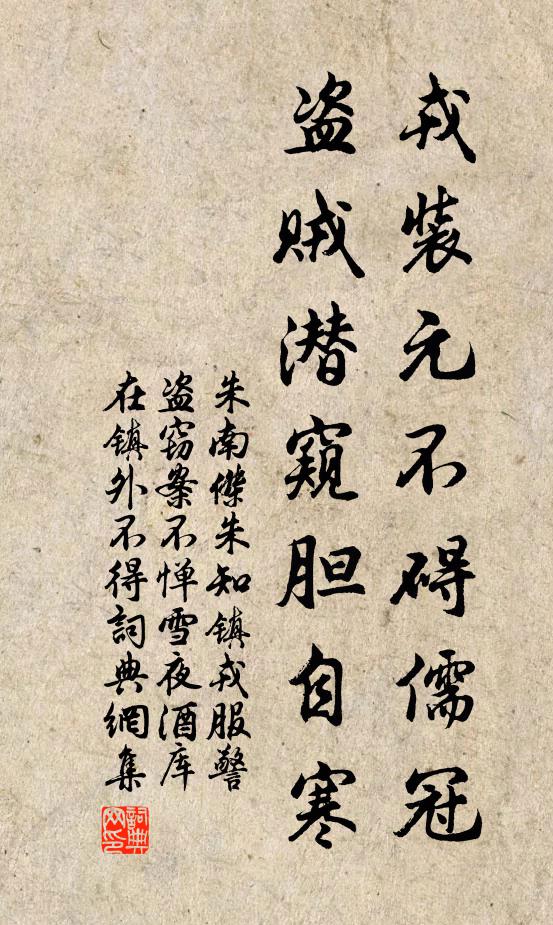 戎装元不碍儒冠
盗贼潜窥胆自寒
朱南傑朱知镇戎服警
盗窃案不惮雪夜酒库
在镇外不得詞典網集
詞典网印